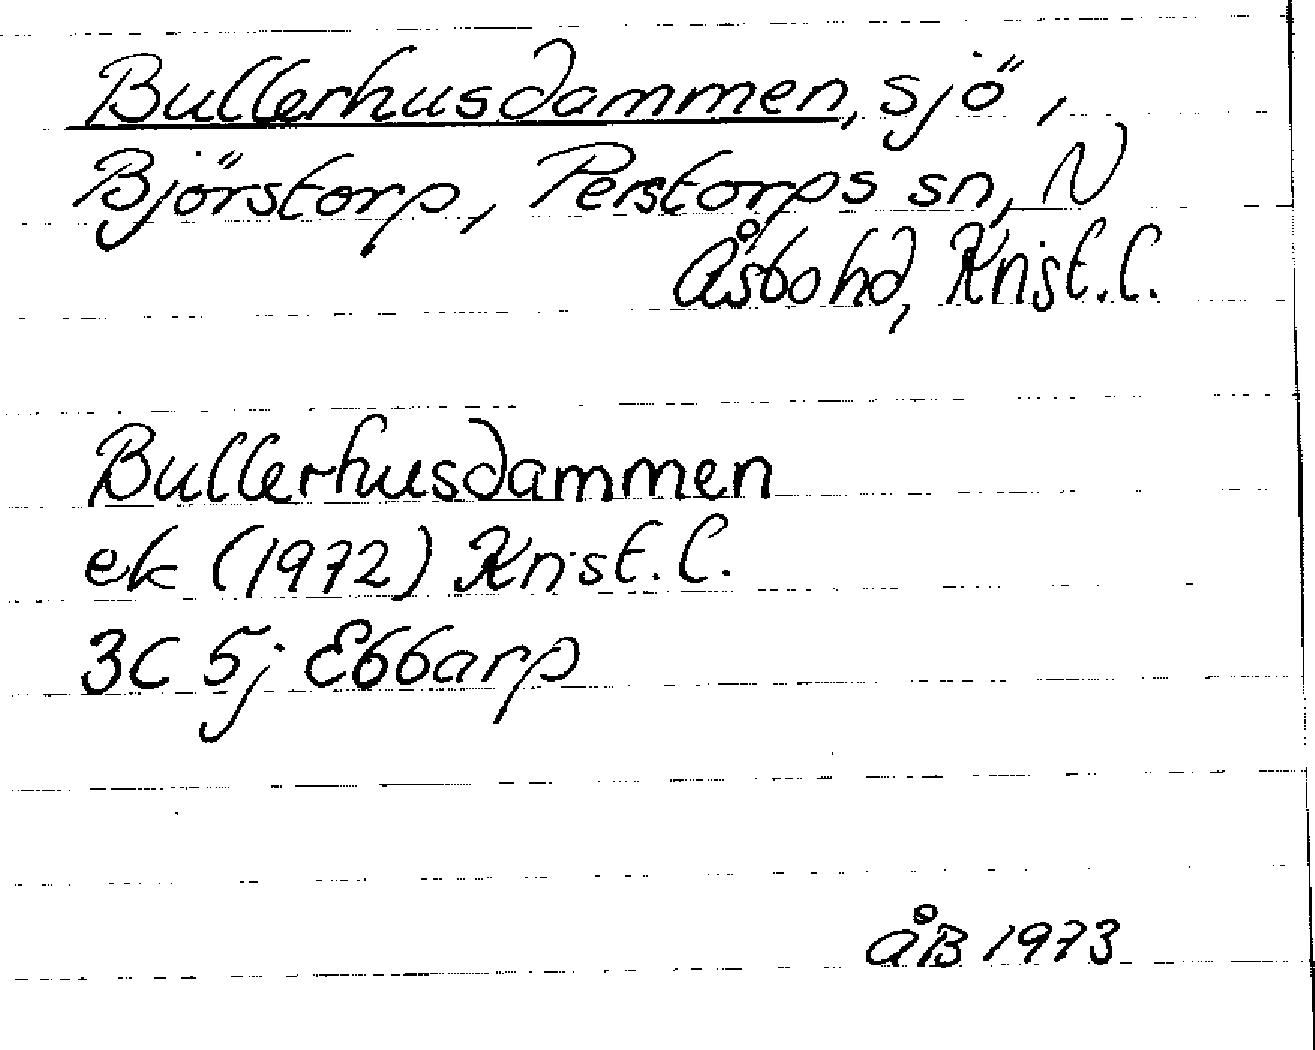 Bullerhusdammen, sjö,
Björstorp, Perstorps sn, N
Åsbo hd, Krist.l.
Bullerhusdammen
ek (1972) Krist.l.
3C 5j Ebbarp
ÅB 1973